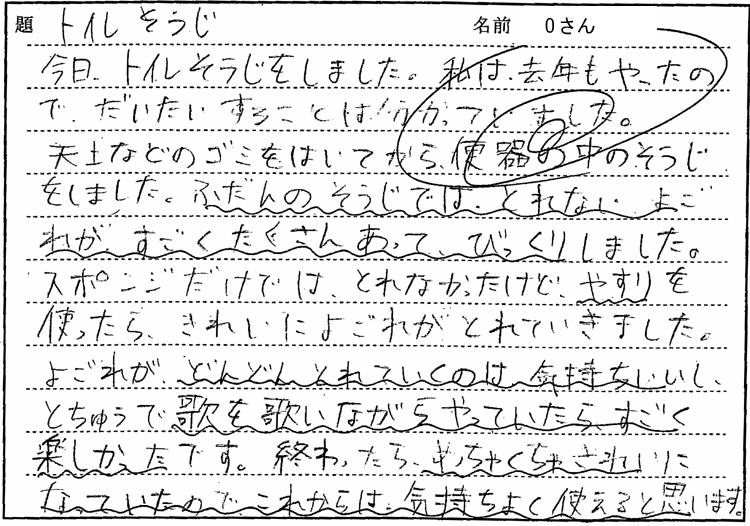 題 トイレそうじ 名前 Oさん
今日、トイレそうじをしました。私は、去年もやったの
で、だいたいすることは分かっていました。
天土などのゴミをはいてから、便器の中のそうじ
をしました。ふだんのそうじでは、とれない よご
れが、すごくたくさんあって、びっくりしました。
スポンジだけでは、とれなかったけど、やすりを
使ったら、きれいによごれがとれていきました。
よごれが、どんどんとれていくのは、気持ちいいし、
とちゅうで歌を歌いながらやっていたら、すごく
楽しかったです。終わったら、めっちゃくちゃきれいに
なっていたのでこれからは、気持ちよく使えると思います。